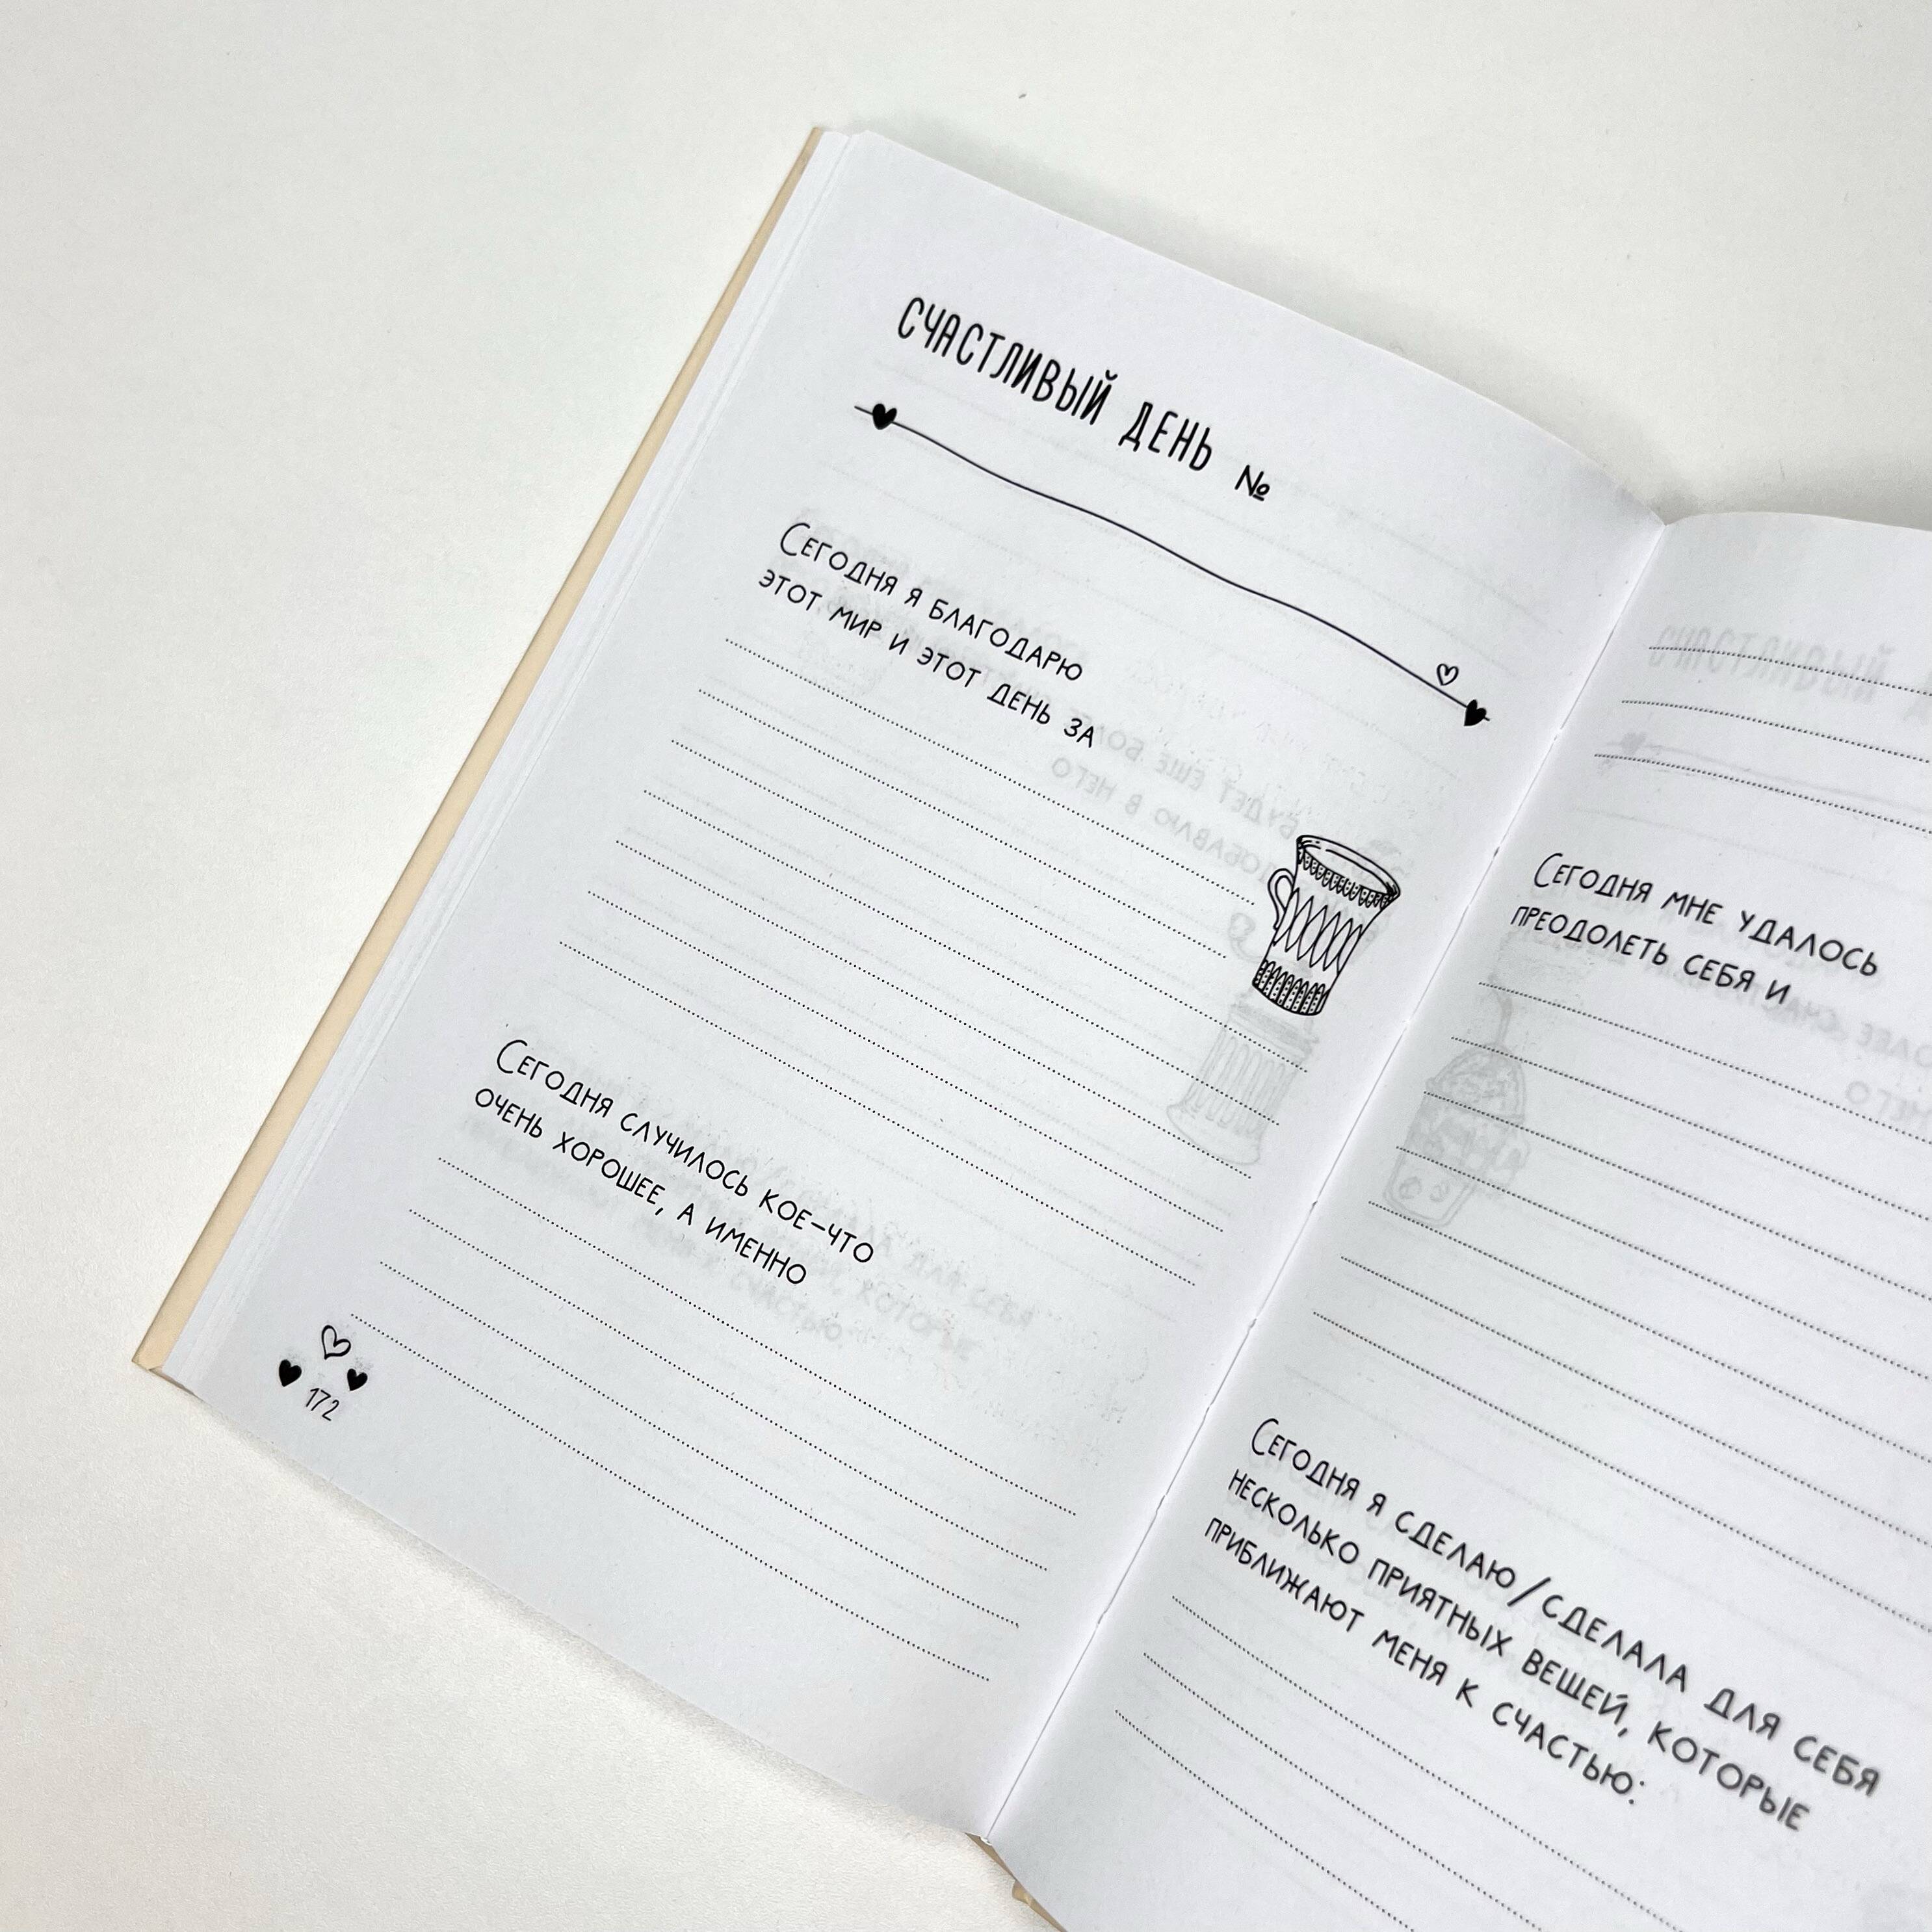 СЧАСТЛИВЫЙ ДЕНЬ №
Сегодня я благодарю
этот мир и этот день за
Сегодня случилось кое-что
очень хорошее, а именно
172
Сегодня мне удалось
преодолеть себя и
Сегодня я сделаю/сделала для себя
несколько приятных вещей, которые
приближают меня к счастью: